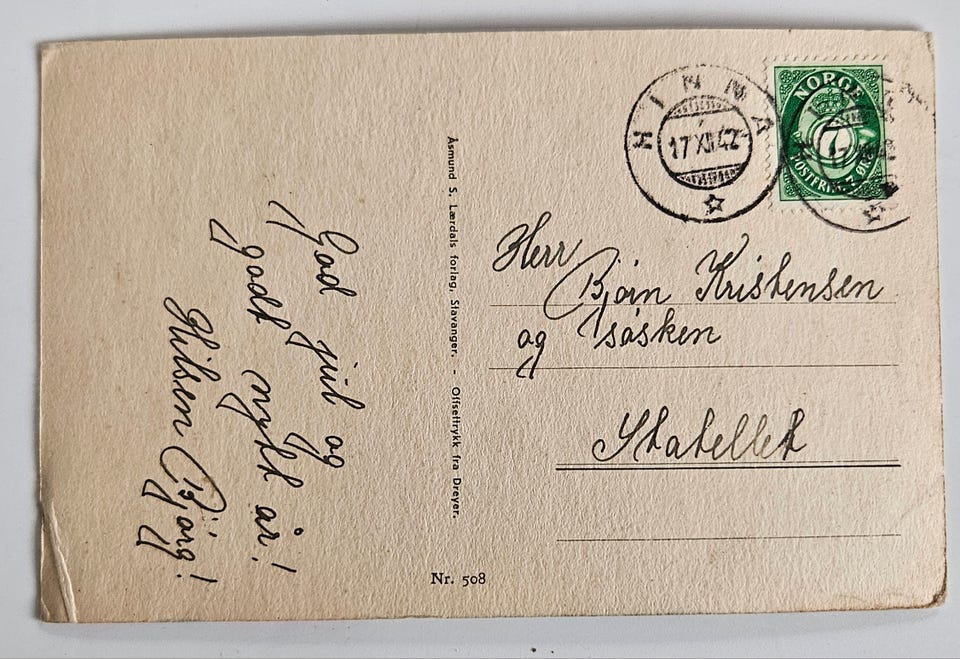 God jul og
godt nytt år!
Hilsen Bjørg!
Åsmund S. Lærdals forlag, Stavanger. - Offsettrykk fra Dreyer.
Nr. 508
HINNA
17 XII 42
NORGE
7
POSTFRIM. 7 ØRE
Herr Bjørn Kristensen
og søsken